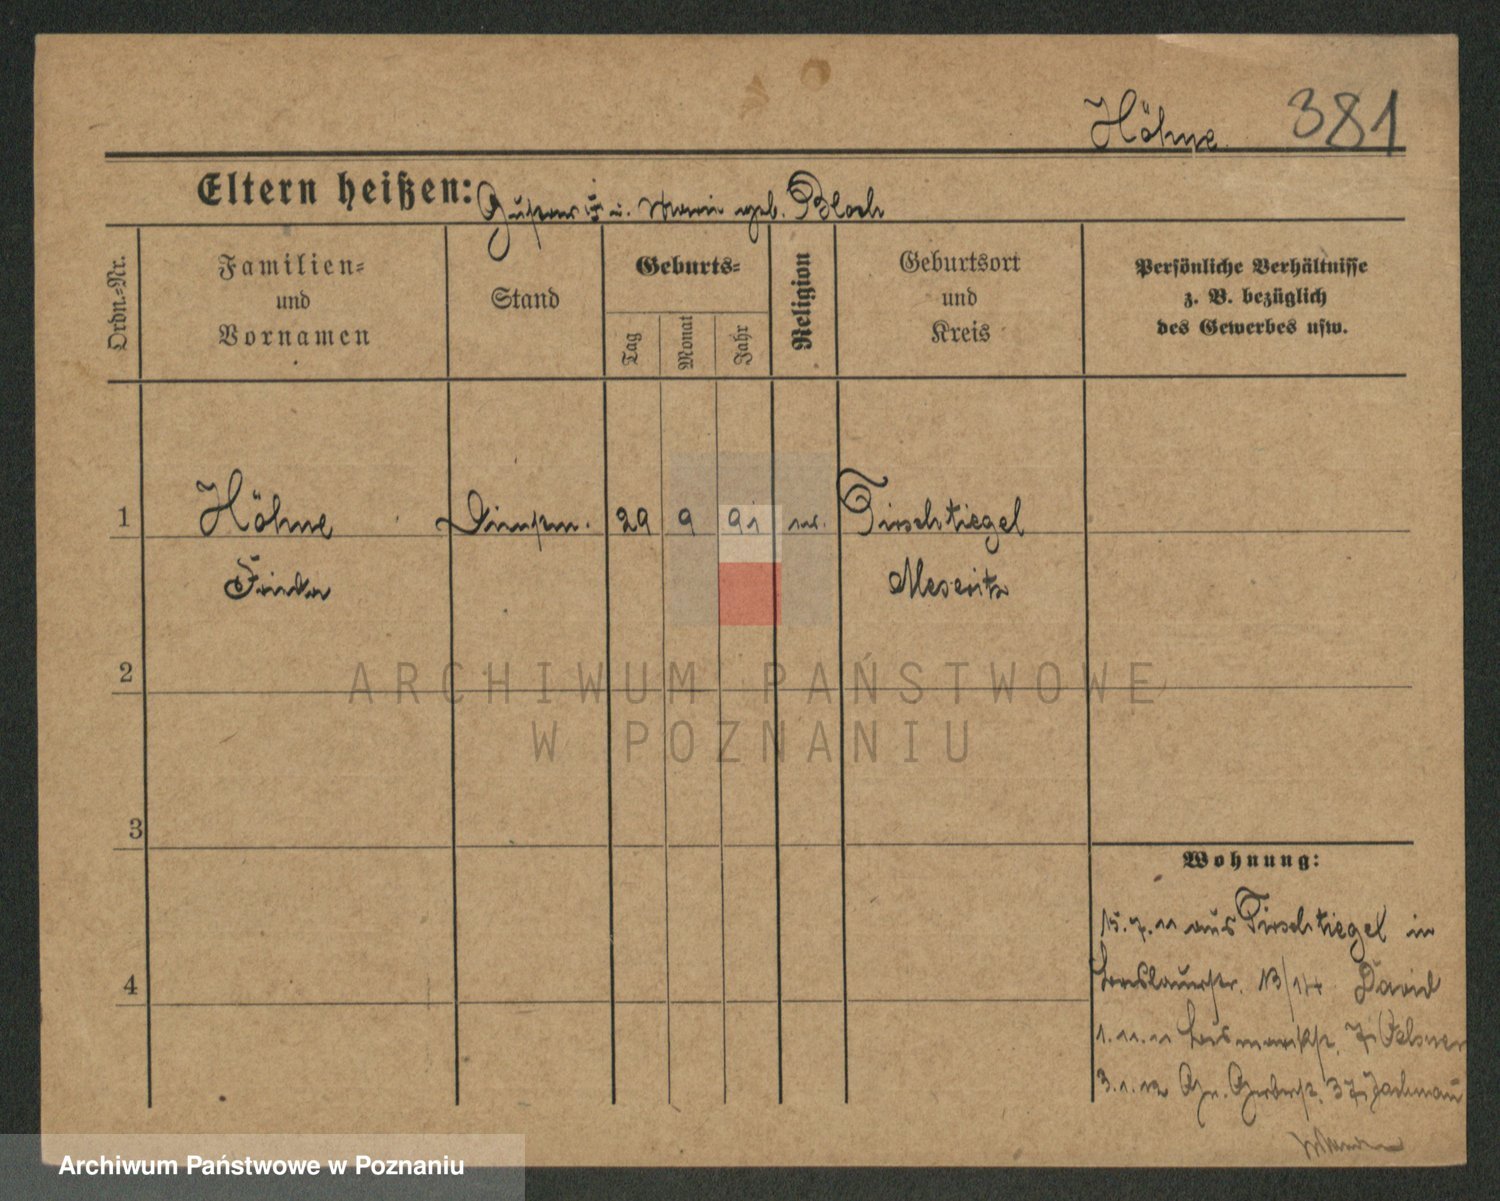 Höhne 381
Eltern heißen: Gustav † u. Marie geb. Bloch
Ordn.-Nr.
Familien-
und
Vornamen
Stand
Geburts-
Tag
Monat
Jahr
Religion
Geburtsort
und
Kreis
Persönliche Verhältnisse
z. B. bezüglich
des Gewerbes usw.
1 Höhne Dienstm. 29 9 91 Tirschtiegel
Meseritz
2
ARCHIWUM PAŃSTWOWE
W POZNANIU
3
Wohnung:
15.7.11 aus Tirschtiegel in
Breslauerstr. 13/14 David
4
1.11.11 Bismarckstr. 7
3.1.12 Gr. Gerberstr. 37 Jachmann
Archiwum Państwowe w Poznaniu